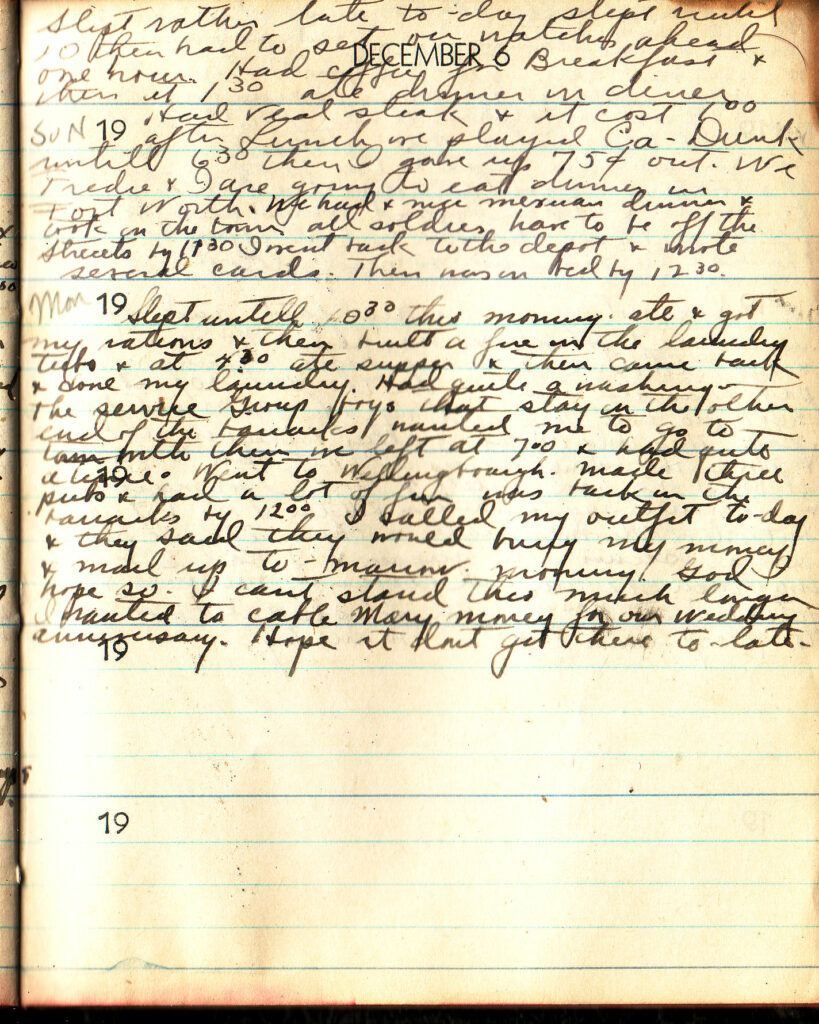 Slept rather late to-day slept until
10 then had to set our watches ahead
DECEMBER 6
one hour. Had coffee for Breakfast &
then at 1 30 ate dinner in diner
Had Veal steak & it cost 1.00
SUN 19 after Lunch we played Ca-Dunk
untill 6 30 then I gave up 75¢ out. We
Fredie & I are going to eat dinner in
Fort Worth. We had a nice mexican dinner &
took in the town all soldiers have to be off the
streets by 11 30 I went back to the depot & wrote
several cards. Then was in bed by 12 30.
Mon 19 Slept untill 10 30 this morning. ate & got
my rations & then built a fire in the laundry
tubs & at 4 30 ate supper & then came back
& done my laundry. Had quite a washing-
the service Group boys that stay in the other
end of the barracks wanted me to go to
town with them we left at 7 00 & had quite
19
a time. Went to Wellingbrough. made three
pubs & had a lot of fun was back in the
barracks by 12 00 I called my outfit to-day
& they said they would bring my money
& mail up to-morrow morning. God I
hope so. I cant stand this much longer
I wanted to cable Mary money for our wedding
anniversary. Hope it dont get there to late-
19
19